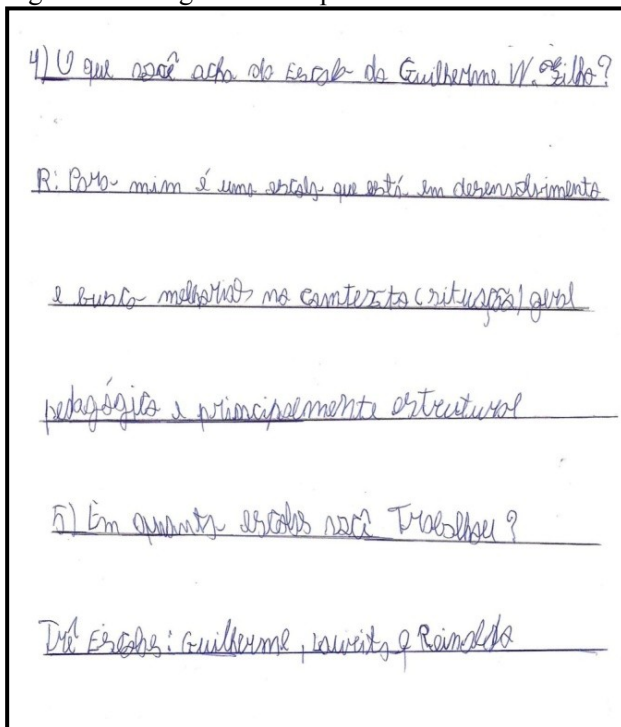 4) O que você acha da Escola da Guilherme W. Filho?
R: Para mim é uma escola que está em desenvolvimento
e busca melhorias no contexto (situação) geral
pedagógica e principalmente estrutural
5) Em quanta escolas você Trabalhou?
Trê Escolas: Guilherme, e Reinaldo